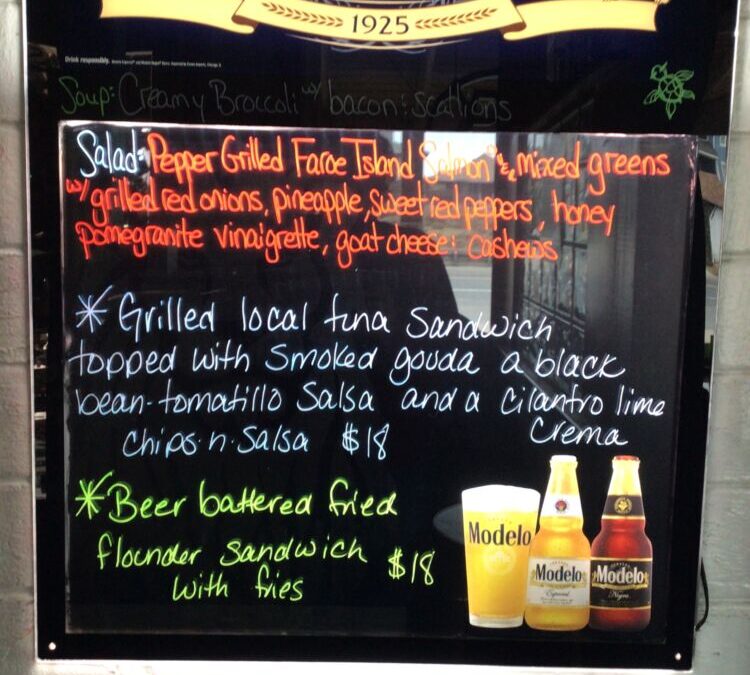 1925
Drink responsibly.
Soup: Creamy Broccoli w/ bacon & scallions
Salad: Pepper Grilled Faroe Island Salmon & mixed greens
w/ grilled red onions, pineapple, sweet red peppers, honey
pomegranite vinaigrette, goat cheese & cashews
* Grilled local tuna Sandwich
topped with Smoked gouda a black
bean-tomatillo Salsa and a cilantro lime
chips-n-Salsa $18 Crema
* Beer battered fried
flounder sandwich $18
with fries
Modelo
Modelo
Especial
Modelo
Negra